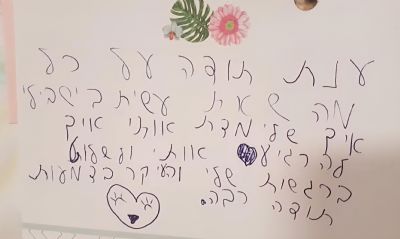 ענת תודה על כל
מה שאת עשית בישבילי
איך שלימדת אותי איך
להרגיע אותי ולשלוט
ברגשות שלי והעיקר בדמעות
תודה רבה.